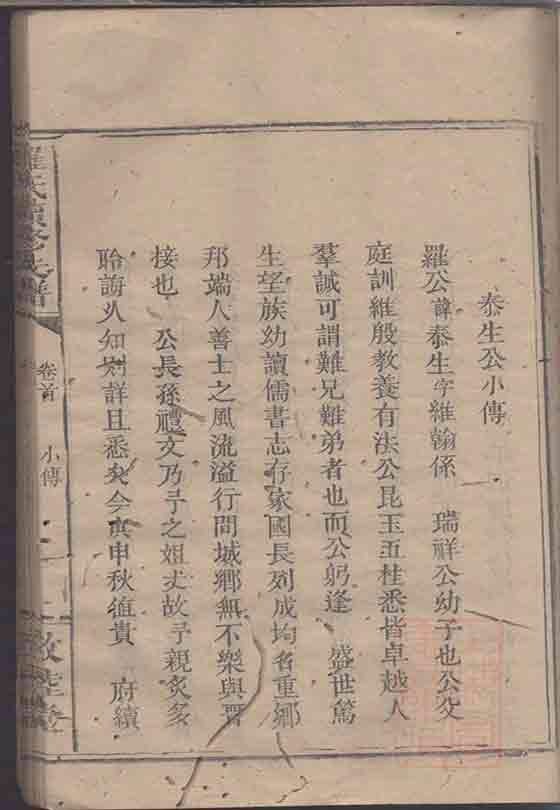 泰生公小傳
羅公諱泰生字維翰係　瑞祥公幼子也公父
庭訓維殷教養有法公昆玉五桂悉皆卓越人
羣誠可謂難兄難弟者也而公躬逢　盛世篤
生望族幼讀儒書志存家國長列成均名重鄉
邦端人善士之風流溢行間城鄉無不樂與晉
接也　公長孫禮文乃予之姐丈故予親炙多
聆訪人知則詳且悉矣今庚申秋値貴　府續
羅氏續修族譜
卷首　小傳
敦睦堂